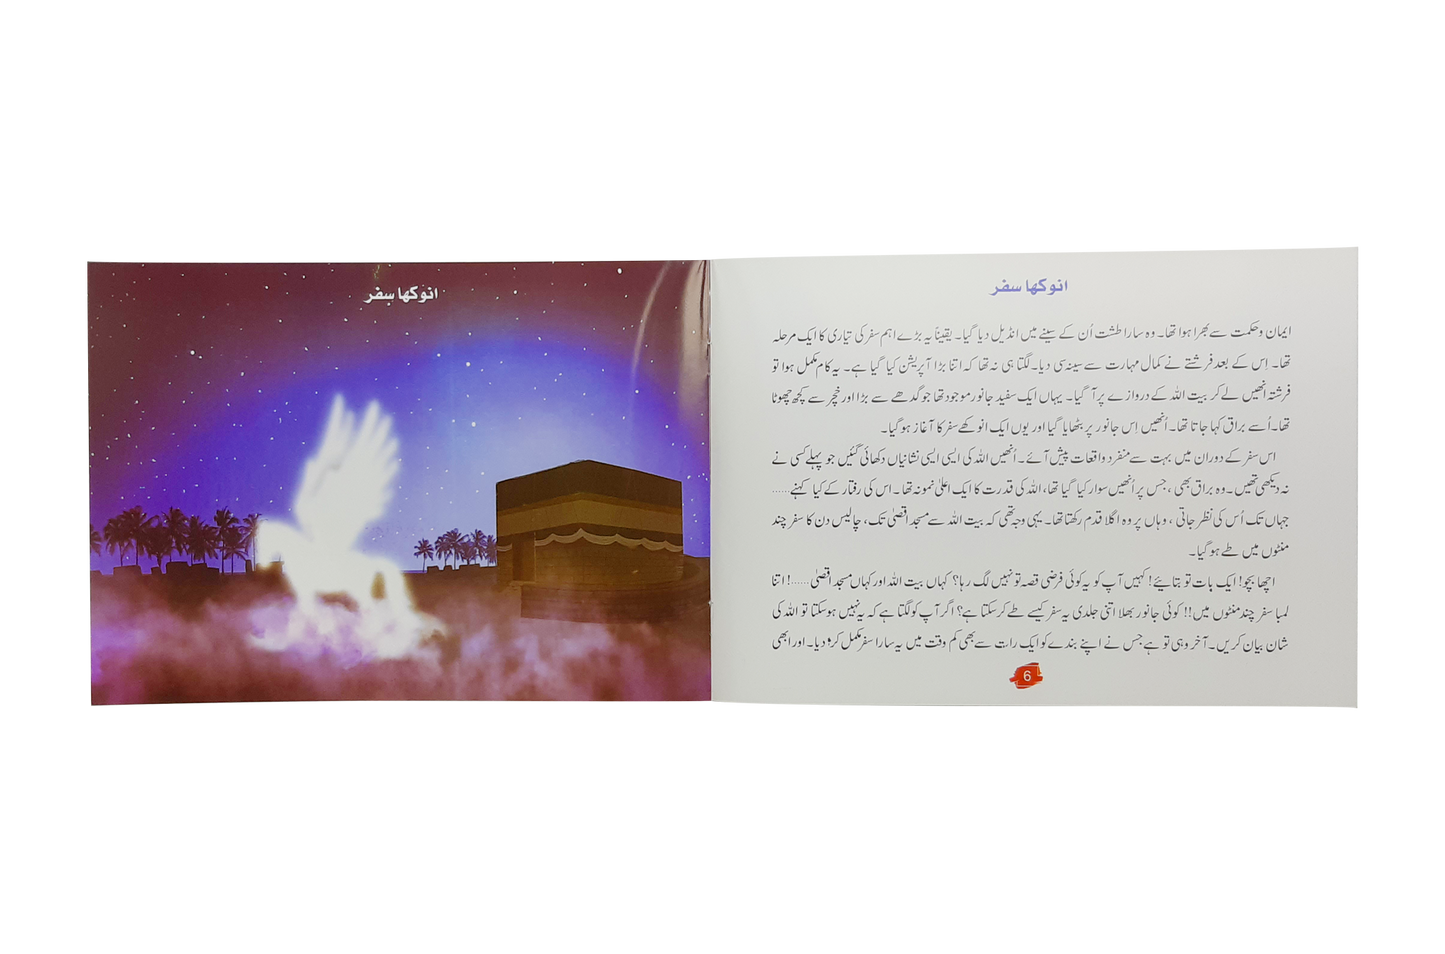 انوکھا سفر
انوکھا سفر
ایمان و حکمت سے بھرا ہوا تھا۔ وہ سارا طشت اُن کے سینے میں انڈیل دیا گیا۔ یقیناً یہ بڑے اہم سفر کی تیاری کا ایک مرحلہ
تھا۔ اِس کے بعد فرشتے نے کمال مہارت سے سینہ سی دیا۔ لگتا ہی نہ تھا کہ اتنا بڑا آپریشن کیا گیا ہے۔ یہ کام مکمل ہوا تو
فرشتہ انھیں لے کر بیت اللہ کے دروازے پر آ گیا۔ یہاں ایک سفید جانور موجود تھا جو گدھے سے بڑا اور خچر سے کچھ چھوٹا
تھا۔ اُسے براق کہا جاتا تھا۔ اُنھیں اِس جانور پر بٹھایا گیا اور یوں ایک انوکھے سفر کا آغاز ہو گیا۔
اس سفر کے دوران میں بہت سے منفرد واقعات پیش آئے۔ اُنھیں اللہ کی ایسی ایسی نشانیاں دکھائی گئیں جو پہلے کسی نے
نہ دیکھی تھیں۔ وہ براق بھی، جس پر اُنھیں سوار کیا گیا تھا، اللہ کی قدرت کا ایک اعلیٰ نمونہ تھا۔ اس کی رفتار کے کیا کہنے......
جہاں تک اُس کی نظر جاتی، وہاں پر وہ اگلا قدم رکھتا تھا۔ یہی وجہ تھی کہ بیت اللہ سے مسجد اقصیٰ تک، چالیس دن کا سفر چند
منٹوں میں طے ہو گیا۔
اچھا بچو! ایک بات تو بتائیے! کہیں آپ کو یہ کوئی فرضی قصہ تو نہیں لگ رہا؟ کہاں بیت اللہ اور کہاں مسجد اقصیٰ......! اتنا
لمبا سفر چند منٹوں میں!! کوئی جانور بھلا اتنی جلدی یہ سفر کیسے طے کر سکتا ہے؟ اگر آپ کو لگتا ہے کہ یہ نہیں ہو سکتا تو اللہ کی
شان بیان کریں۔ آخر وہی تو ہے جس نے اپنے بندے کو ایک رات سے بھی کم وقت میں یہ سارا سفر مکمل کروا دیا۔ اور ابھی
6